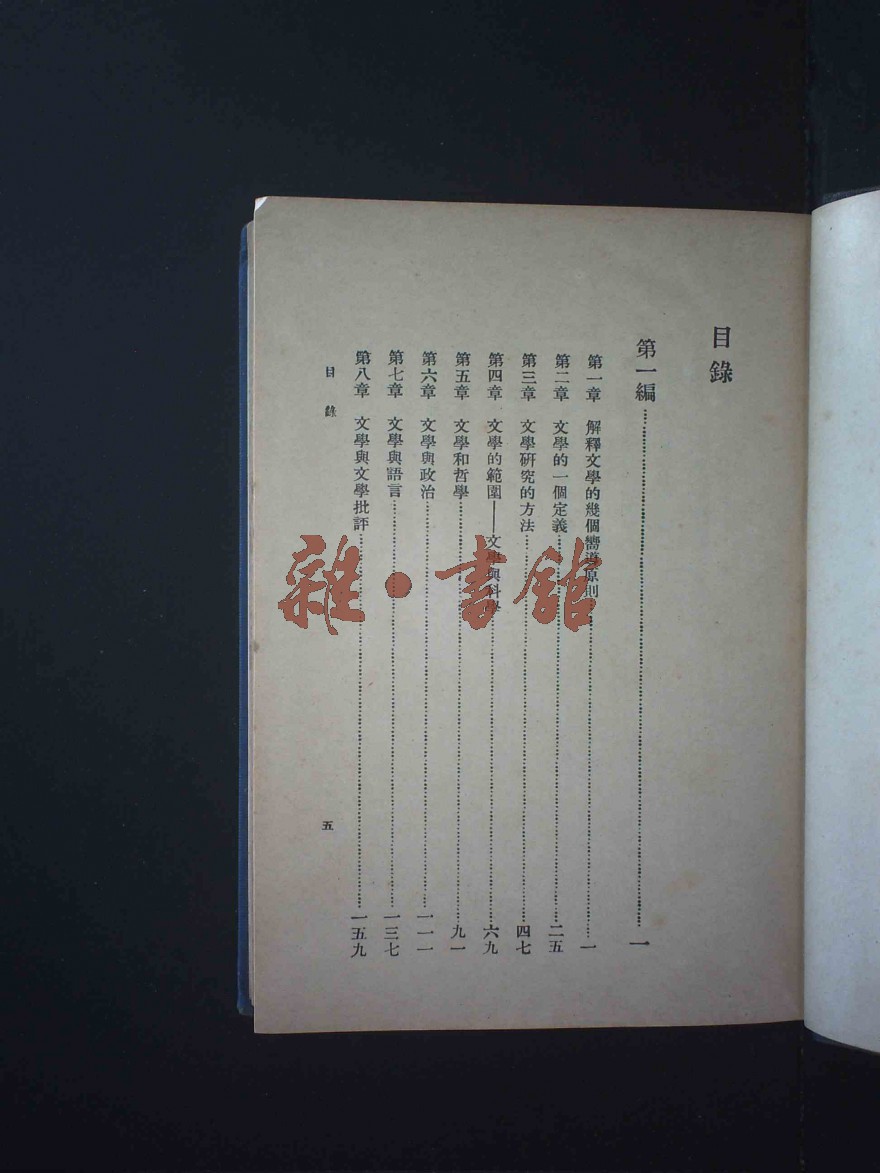 目錄
第一編…………一
第一章　解釋文學的幾個嚮導原則…………一
第二章　文學的一個定義…………二五
第三章　文學研究的方法…………四七
第四章　文學的範圍——文學與科學…………六九
第五章　文學和哲學…………九一
第六章　文學與政治…………一一一
第七章　文學與語言…………一三七
第八章　文學與文學批評…………一五九
目錄
五
雜・書館